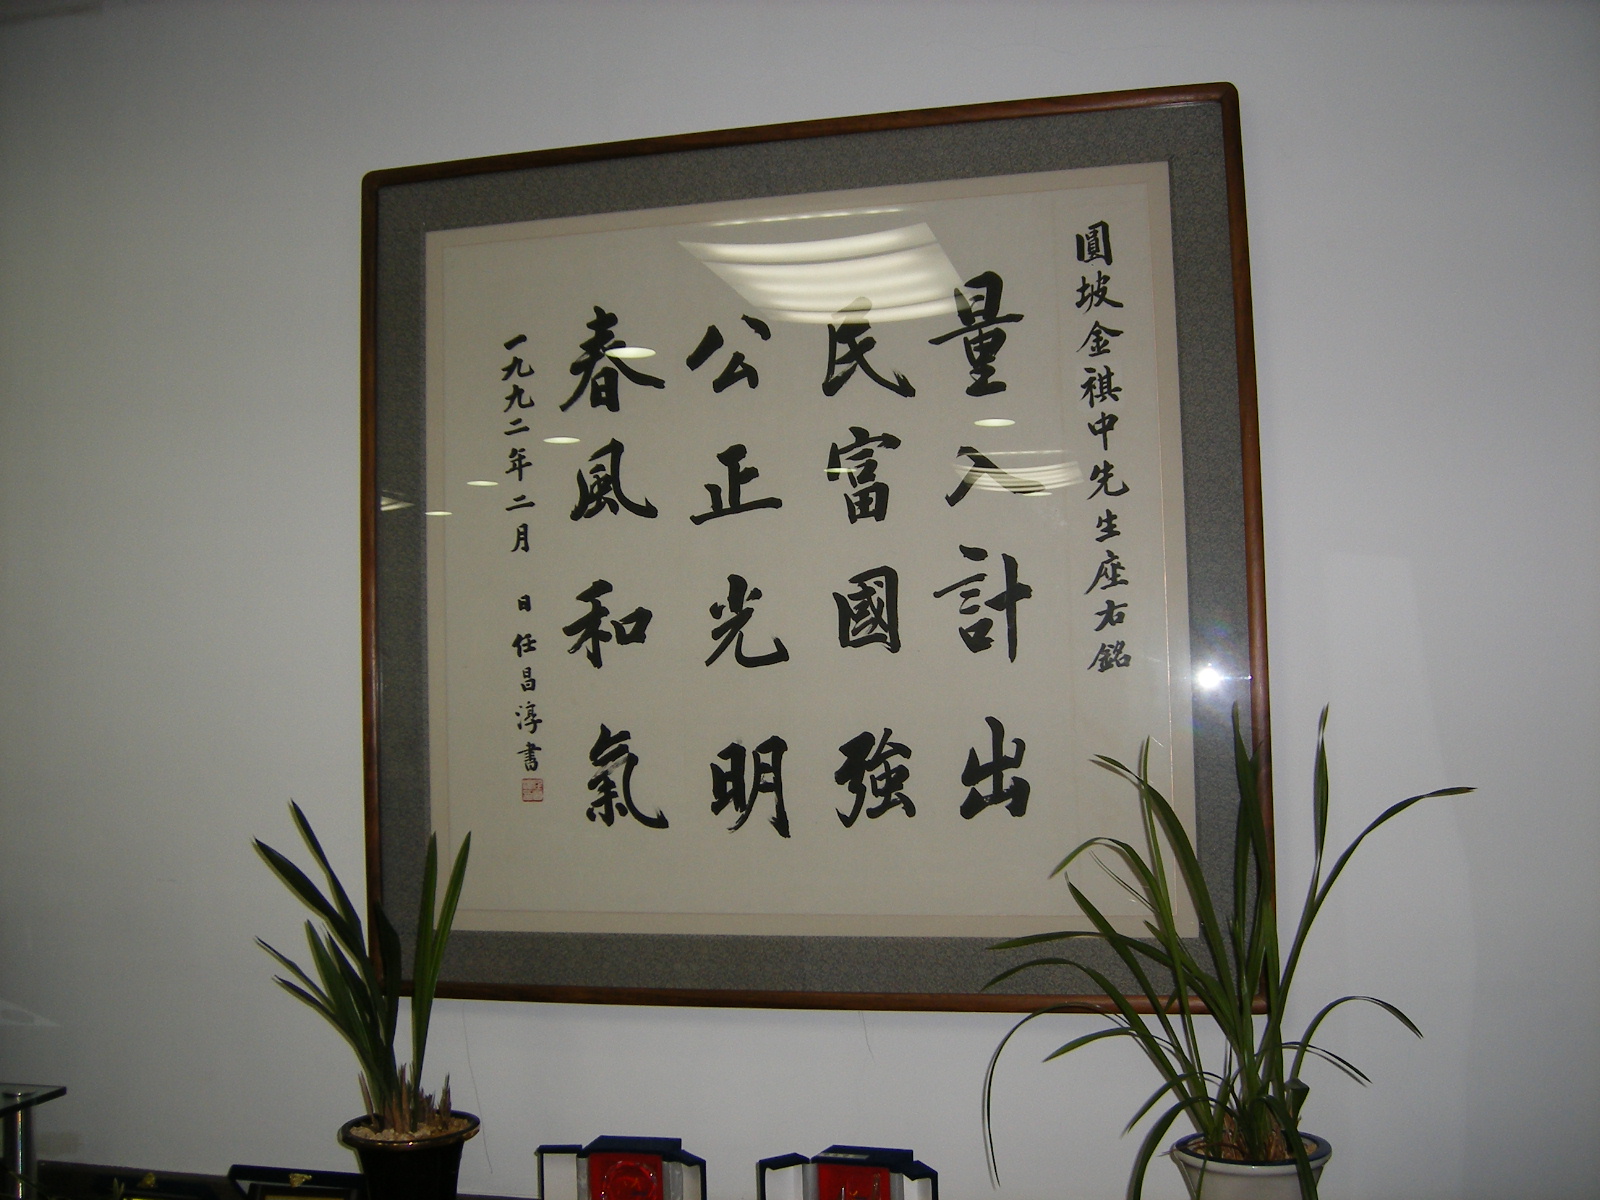 圓坡金祺中先生座右銘
量入計出
民富國強
公正光明
春風和氣
一九九二年二月 日 任昌淳書